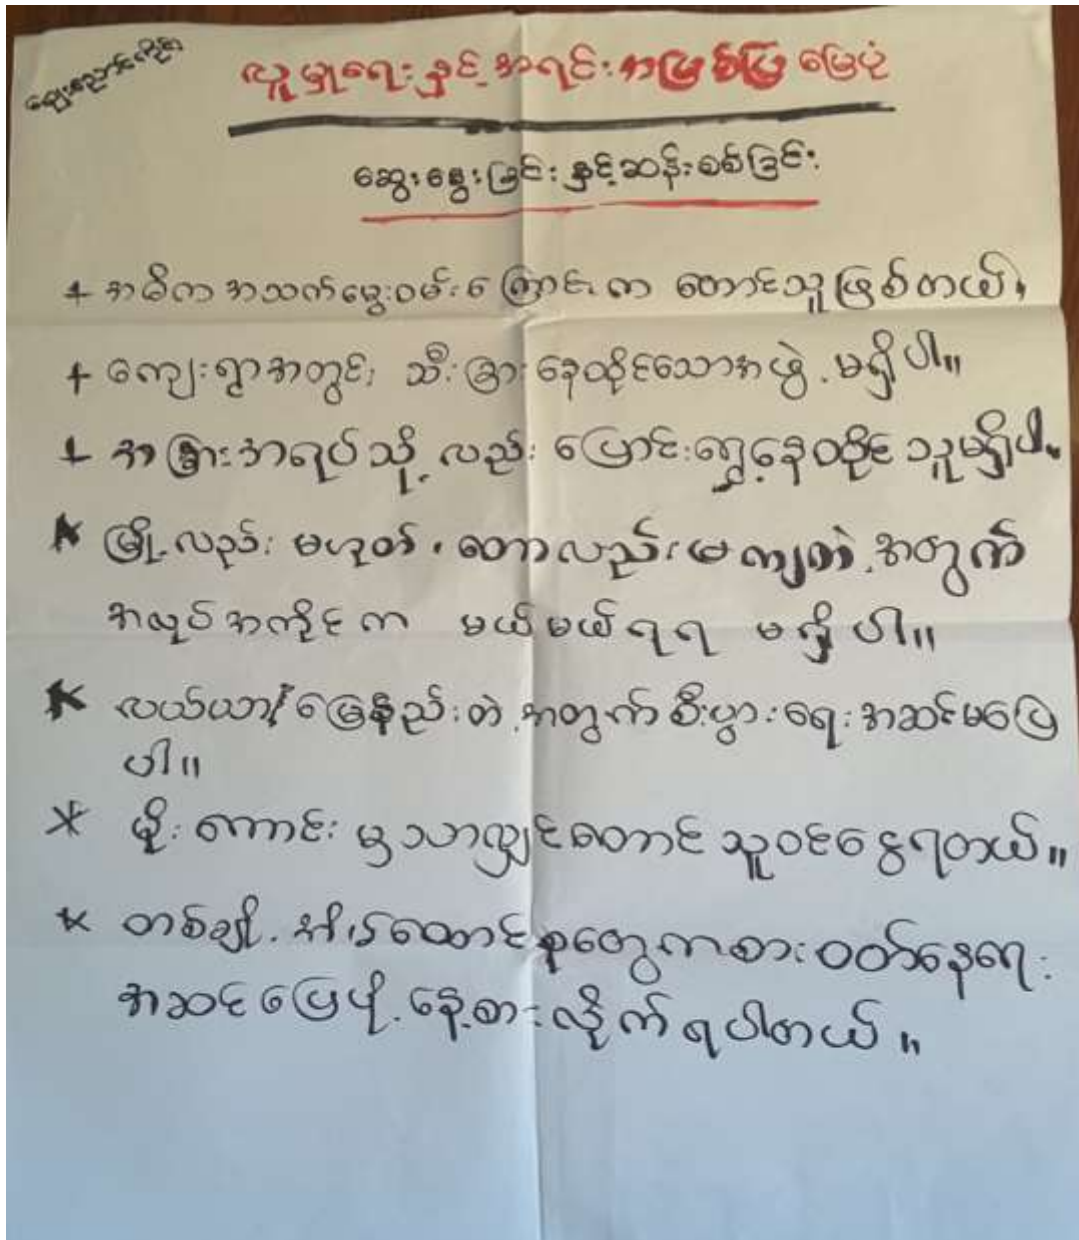 လူမှုရေးနှင့် အရင်းအမြစ်ပြ မြေပုံ
ဆွေးနွေးခြင်း နှင့်ဆန်းစစ်ခြင်း
+ အဓိက အသက်မွေးဝမ်းကြောင်းက တောင်သူဖြစ်တယ်၊
+ ကျေးရွာအတွင်း သီးခြားနေထိုင်သောအဖွဲ့ မရှိပါ။
+ အခြားအရပ်သို့ လည်း ပြောင်းရွှေ့နေထိုင်သူမရှိပါ။
* မြို့လည်း မဟုတ်၊ တောလည်းမကျတဲ့အတွက်
အလုပ်အကိုင်က မယ်မယ်ရရ မရှိပါ။
* လယ်ယာ/မြေနည်းတဲ့အတွက်စီးပွားရေးအဆင်မပြေ
ပါ။
* မိုးကောင်းမှသာလျှင်တောင်သူဝင်ငွေရတယ်။
* တစ်ချို့အိမ်ထောင်စုတွေကစားဝတ်နေရေး
အဆင်ပြေဖို့နေ့စားလိုက်ရပါတယ်။